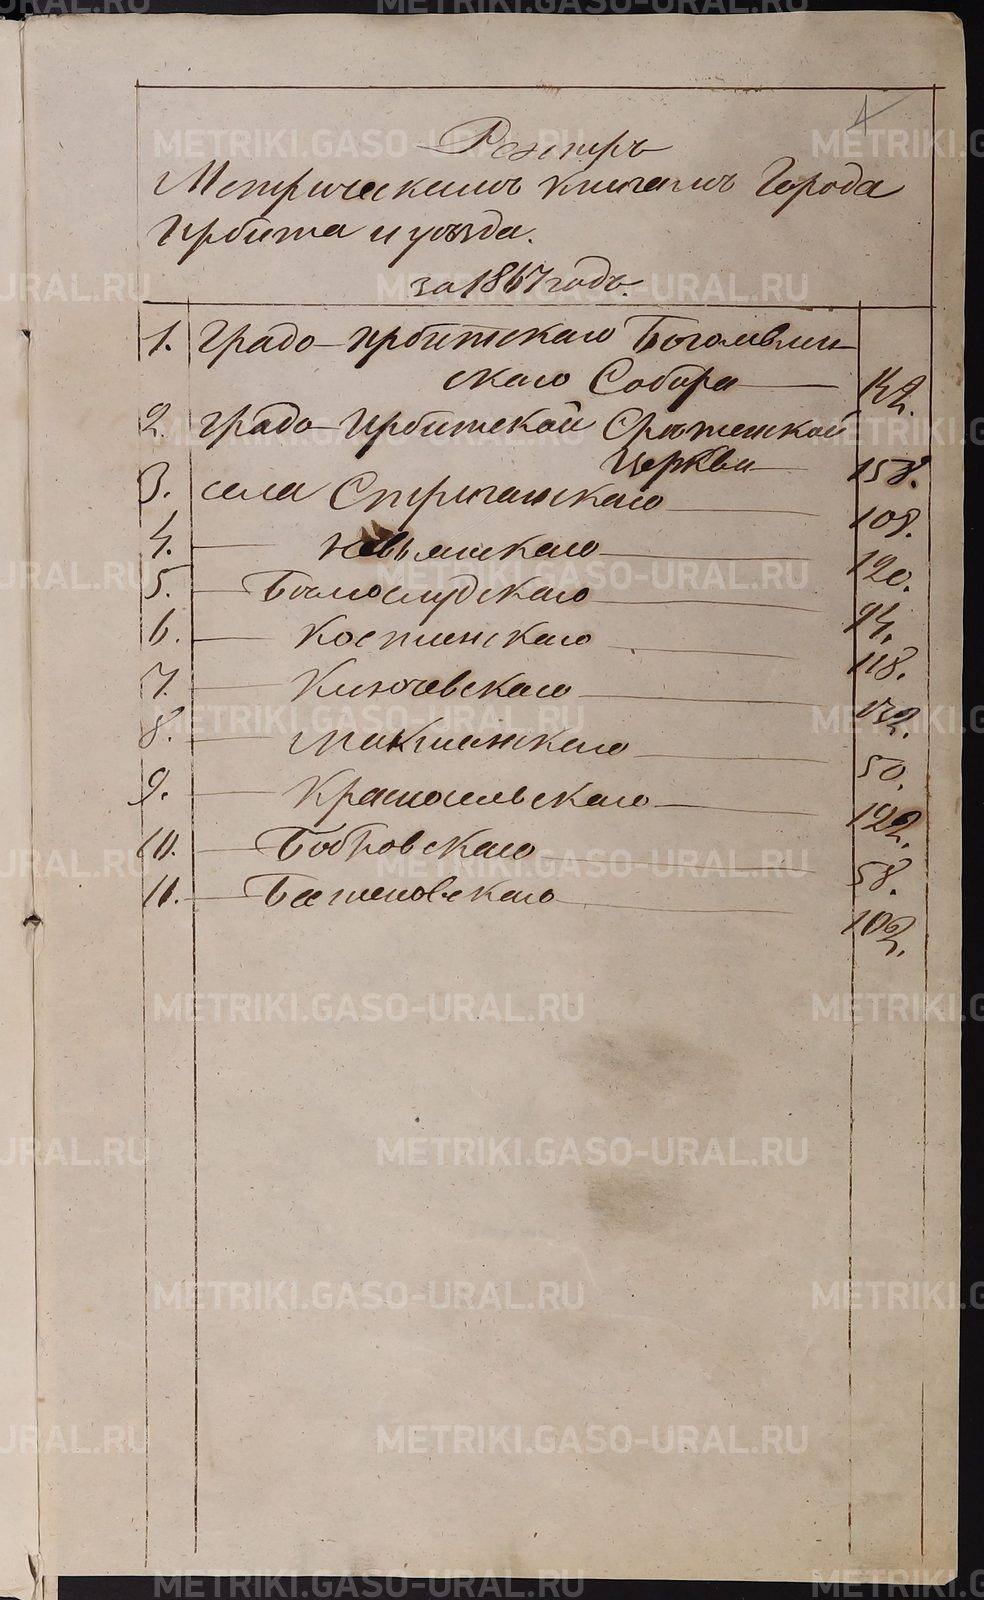 4
Реэстръ
Метрическимъ книгамъ Города
Ирбита и уѣзда.
за 1867 годъ.
1. Градо-Ирбитскаго Богоявлен-
скаго Собора
2. Градо-Ирбитской Срѣтенской
Церкви 158.
3. села Стриганскаго 108.
4. — Невьянскаго 120.
5. — Бѣлослудскаго 94.
6. — Костинскаго 118.
7. — Ключевскаго 132.
8. — Мокшенскаго 50.
9. — Красносельскаго 122.
10. — Бобровскаго 58.
11. — Баженовскаго 102.
METRIKI.GASO-URAL.RU